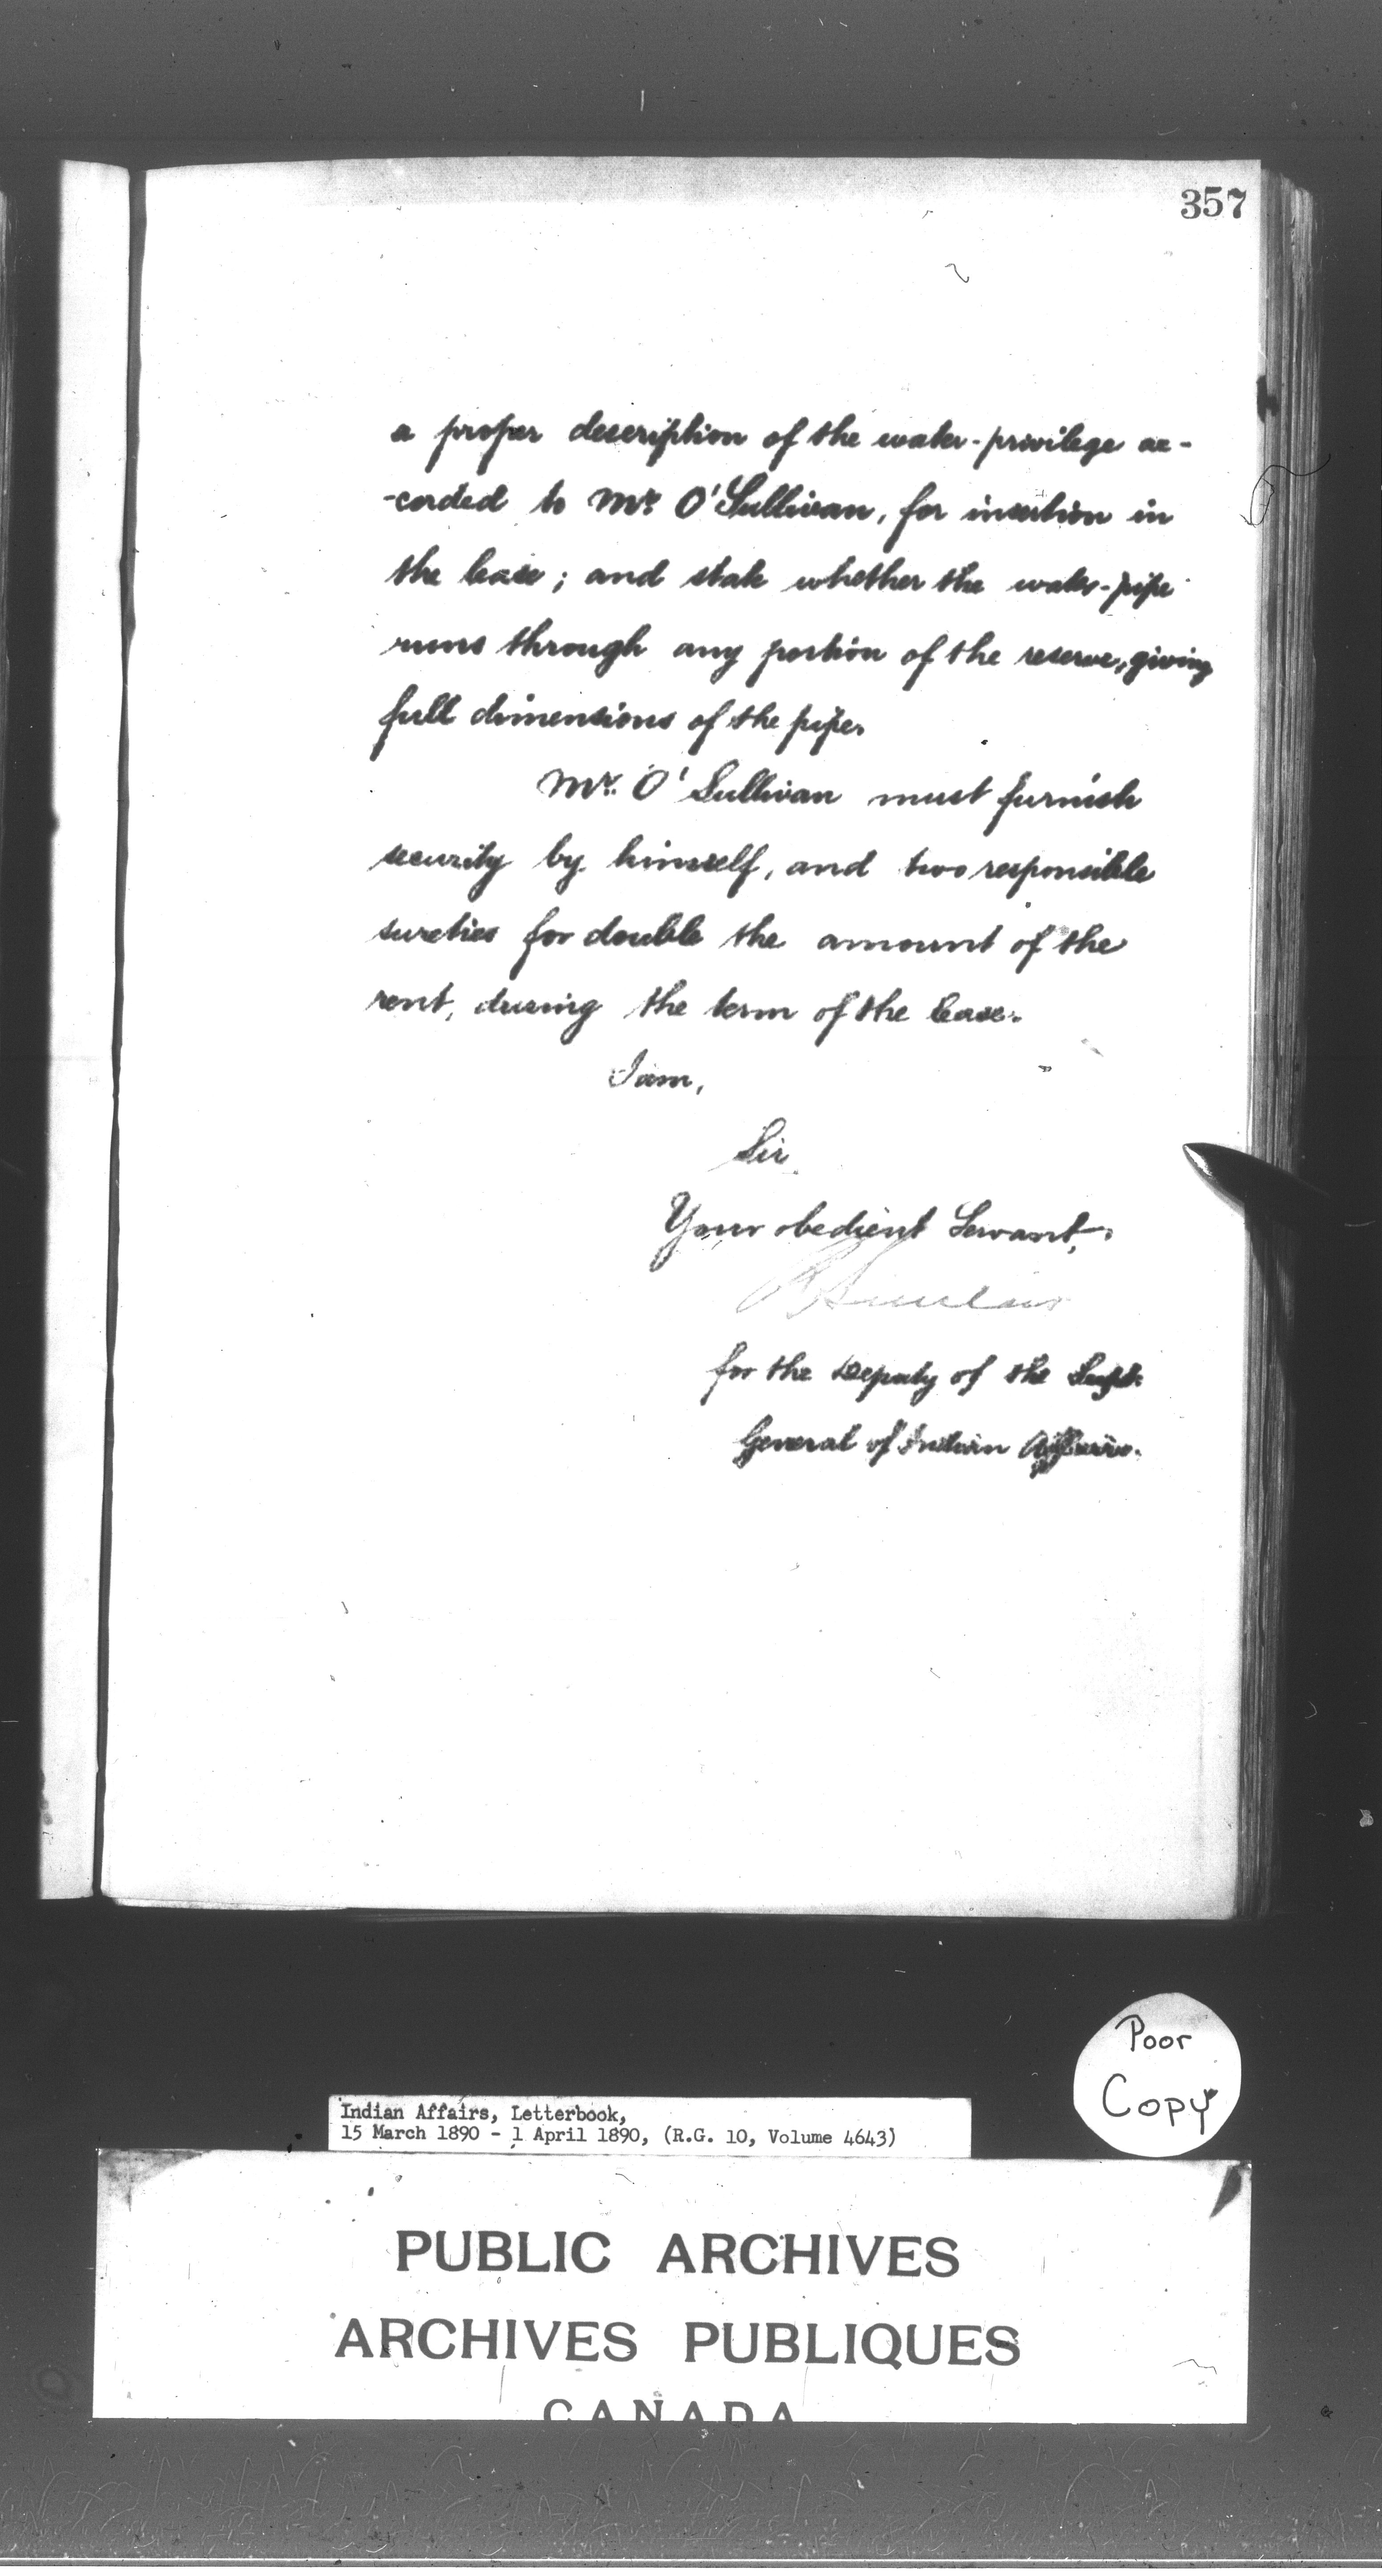 357
a proper description of the water-privilege ac-
-corded to Mr. O'Sullivan, for insertion in
the lease; and state whether the water-pipe
runs through any portion of the reserve, giving
full dimensions of the pipe.
Mr. O'Sullivan must furnish
security by himself, and two responsible
sureties for double the amount of the
rent, during the term of the lease.
I am,
Sir
Your obedient Servant,
R Sinclair
for the Deputy of the Supt.
General of Indian Affairs.
Poor
Copy
Indian Affairs, Letterbook,
15 March 1890 - 1 April 1890, (R.G. 10, Volume 4643)
PUBLIC ARCHIVES
ARCHIVES PUBLIQUES
CANADA